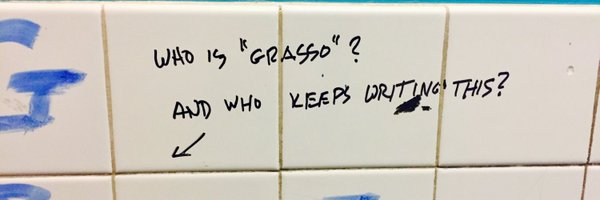 WHO IS "GRASSO"?
AND WHO KEEPS WRITING THIS?